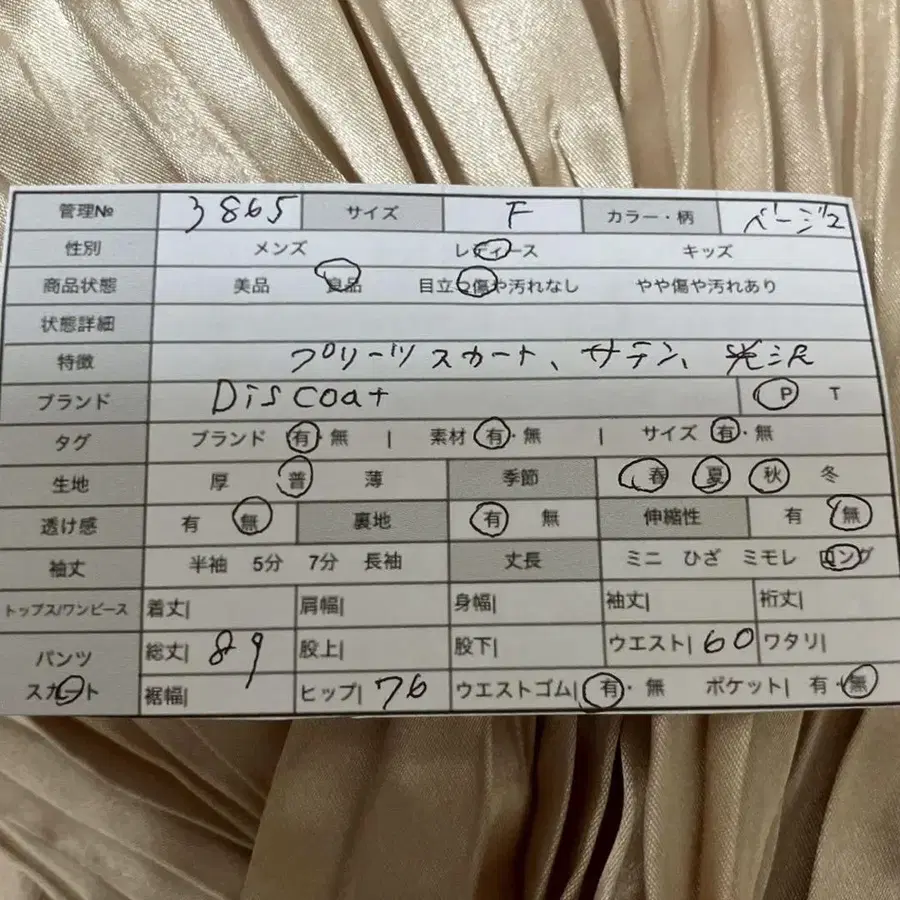 管理№ 3865 サイズ F カラー・柄 ベージュ
性別 メンズ レディース キッズ
商品状態 美品 良品 目立つ傷や汚れなし やや傷や汚れあり
状態詳細
特徴 プリーツスカート、サテン、光沢
ブランド Discoat P T
タグ ブランド 有・無 | 素材 有・無 | サイズ 有・無
生地 厚 普 薄 季節 春 夏 秋 冬
透け感 有 無 裏地 有 無 伸縮性 有 無
袖丈 半袖 5分 7分 長袖 丈長 ミニ ひざ ミモレ ロング
トップス/ワンピース 着丈| 肩幅| 身幅| 袖丈| 裄丈|
パンツ 総丈| 89 股上| 股下| ウエスト| 60 ワタリ|
スカート 裾幅| ヒップ| 76 ウエストゴム| 有・無 ポケット| 有・無